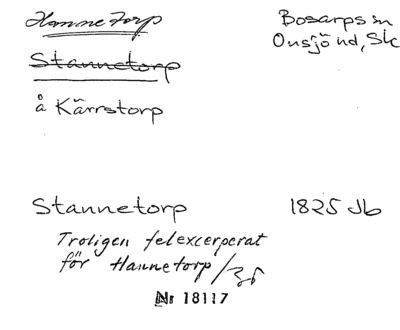 Hannetorp
Bosarps sn
Onsjö hd, Sk
Stannetorp
å Kärrstorp
Stannetorp 1825 Jb
Troligen felexcerperat
för Hannetorp/
Nr 18117